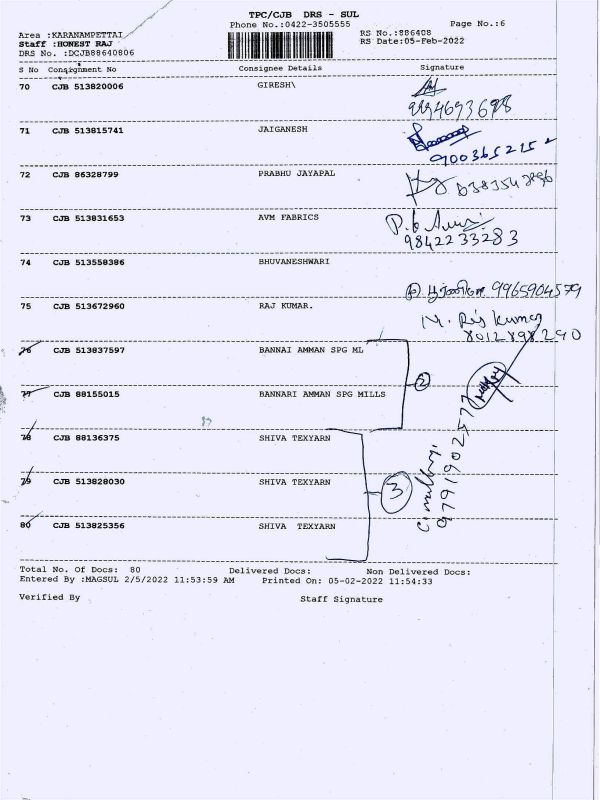 TPC/CJB DRS - SUL
Phone No.:0422-3505555
Page No.:6
Area :KARANAMPETTAI
RS No.:886408
Staff :HONEST RAJ
RS Date:05-Feb-2022
DRS No. :DCJB88640806
S No Consignment No Consignee Details Signature
70 CJB 513820006 GIRESH\
71 CJB 513815741 JAIGANESH
72 CJB 86328799 PRABHU JAYAPAL
73 CJB 513831653 AVM FABRICS
9842233283
74 CJB 513558386 BHUVANESHWARI
9965904579
75 CJB 513672960 RAJ KUMAR.
8012898290
76 CJB 513837597 BANNAI AMMAN SPG ML
2
77 CJB 88155015 BANNARI AMMAN SPG MILLS
78 CJB 88136375 SHIVA TEXYARN
9791902577
79 CJB 513828030 SHIVA TEXYARN
3
80 CJB 513825356 SHIVA TEXYARN
Total No. Of Docs: 80 Delivered Docs: Non Delivered Docs:
Entered By :MAGSUL 2/5/2022 11:53:59 AM Printed On: 05-02-2022 11:54:33
Verified By Staff Signature